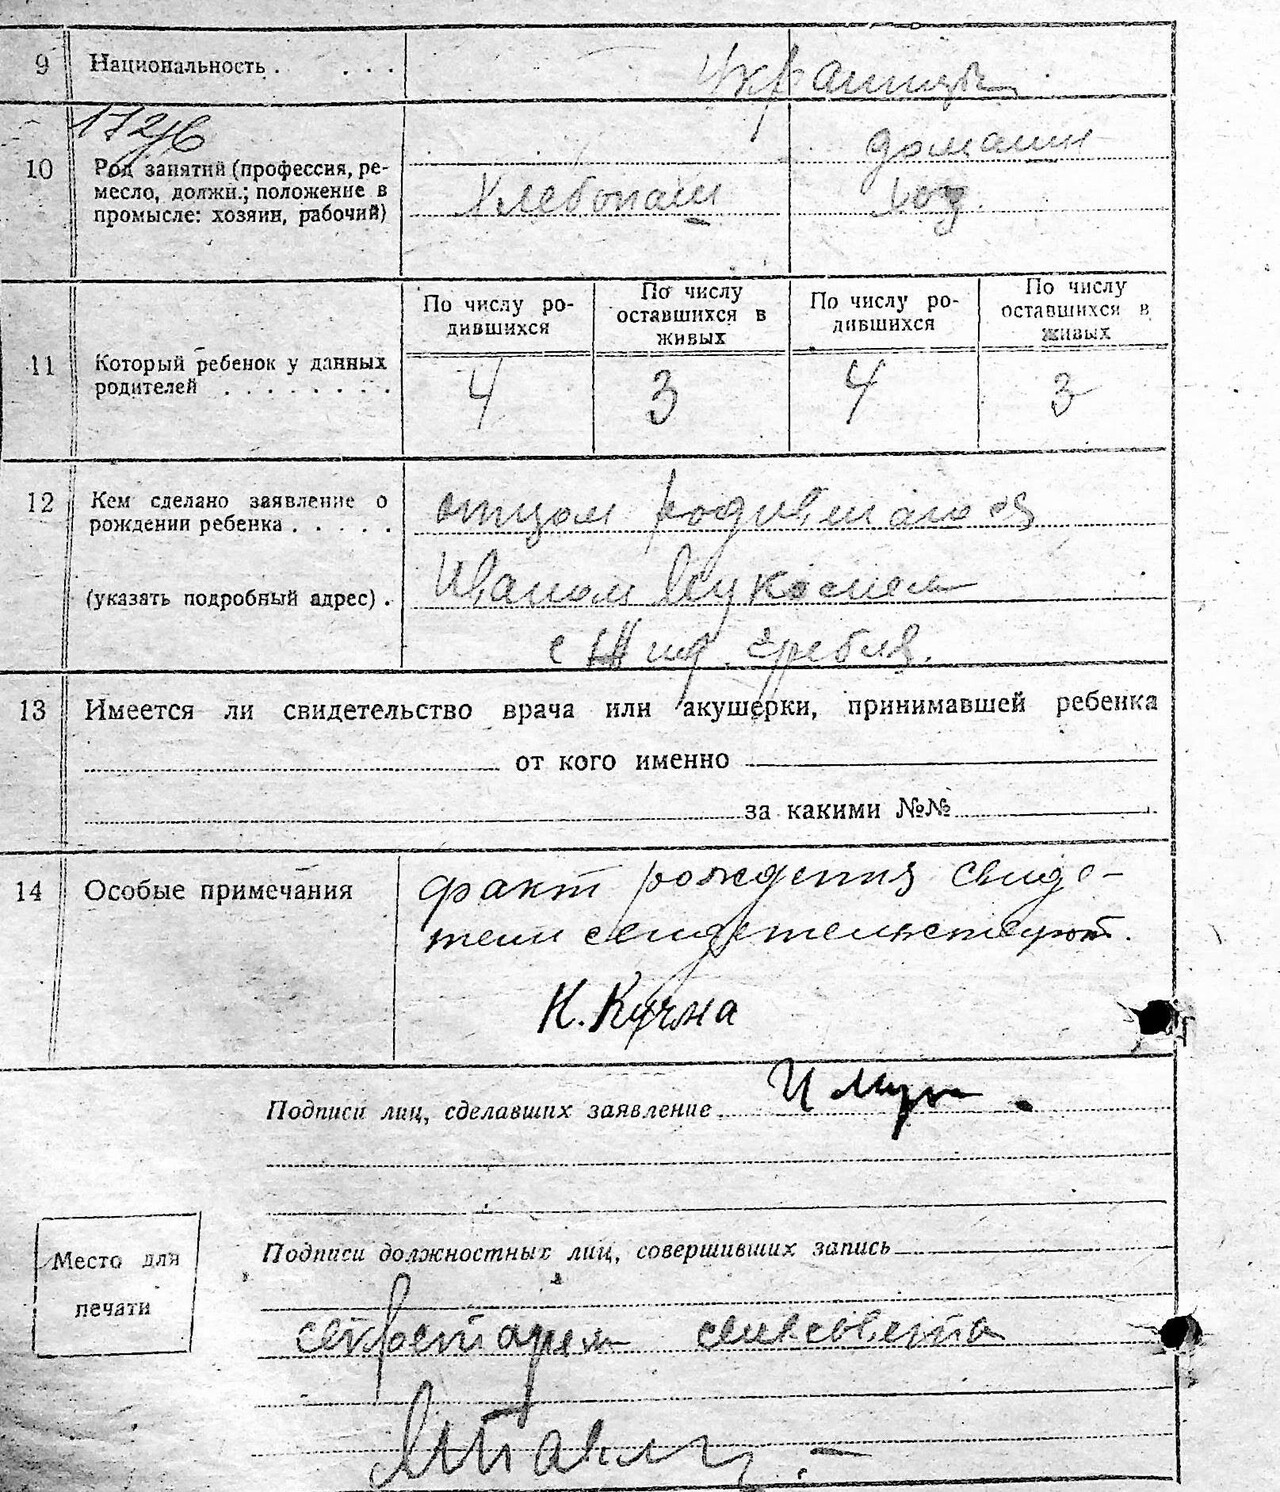 9 Национальность . . . . Украинцы
172/6
домашн
10 Род занятий (профессия, ре-
месло, должн.; положение в
промысле: хозяин, рабочий)
Хлебопаш хоз.
По числу ро-
дившихся
По числу
оставшихся в
живых
По числу ро-
дившихся
По числу
оставшихся в
живых
11 Который ребенок у данных
родителей . . . . . . .
4 3 4 3
12 Кем сделано заявление о
рождении ребенка . . . . .
отцом родившагося
(указать подробный адрес) .
Иваном
с гребля.
13 Имеется ли свидетельство врача или акушерки, принимавшей ребенка
от кого именно
за какими №№
14 Особые примечания
факт рождения свиде-
тели свидетельствуют.
К. Кучма
Подписи лиц, сделавших заявление.
Место для
печати
Подписи должностных лиц, совершивших запись
секретарем сельсовета